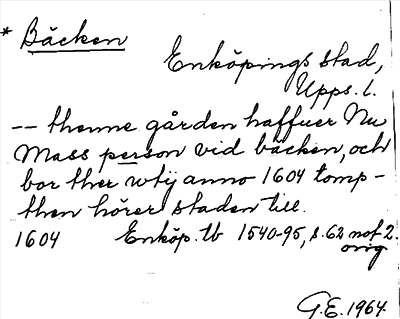 * Bäcken
Enköpings stad,
Upps. l.
-- thenne gården haffuer Nu
Mass person vid bäcken, och
bor ther wtij anno 1604 tomp-
then hörer staden till.
1604 Enköp. tb 1540-95, s. 62 not 2.
orig.
G.E. 1964.